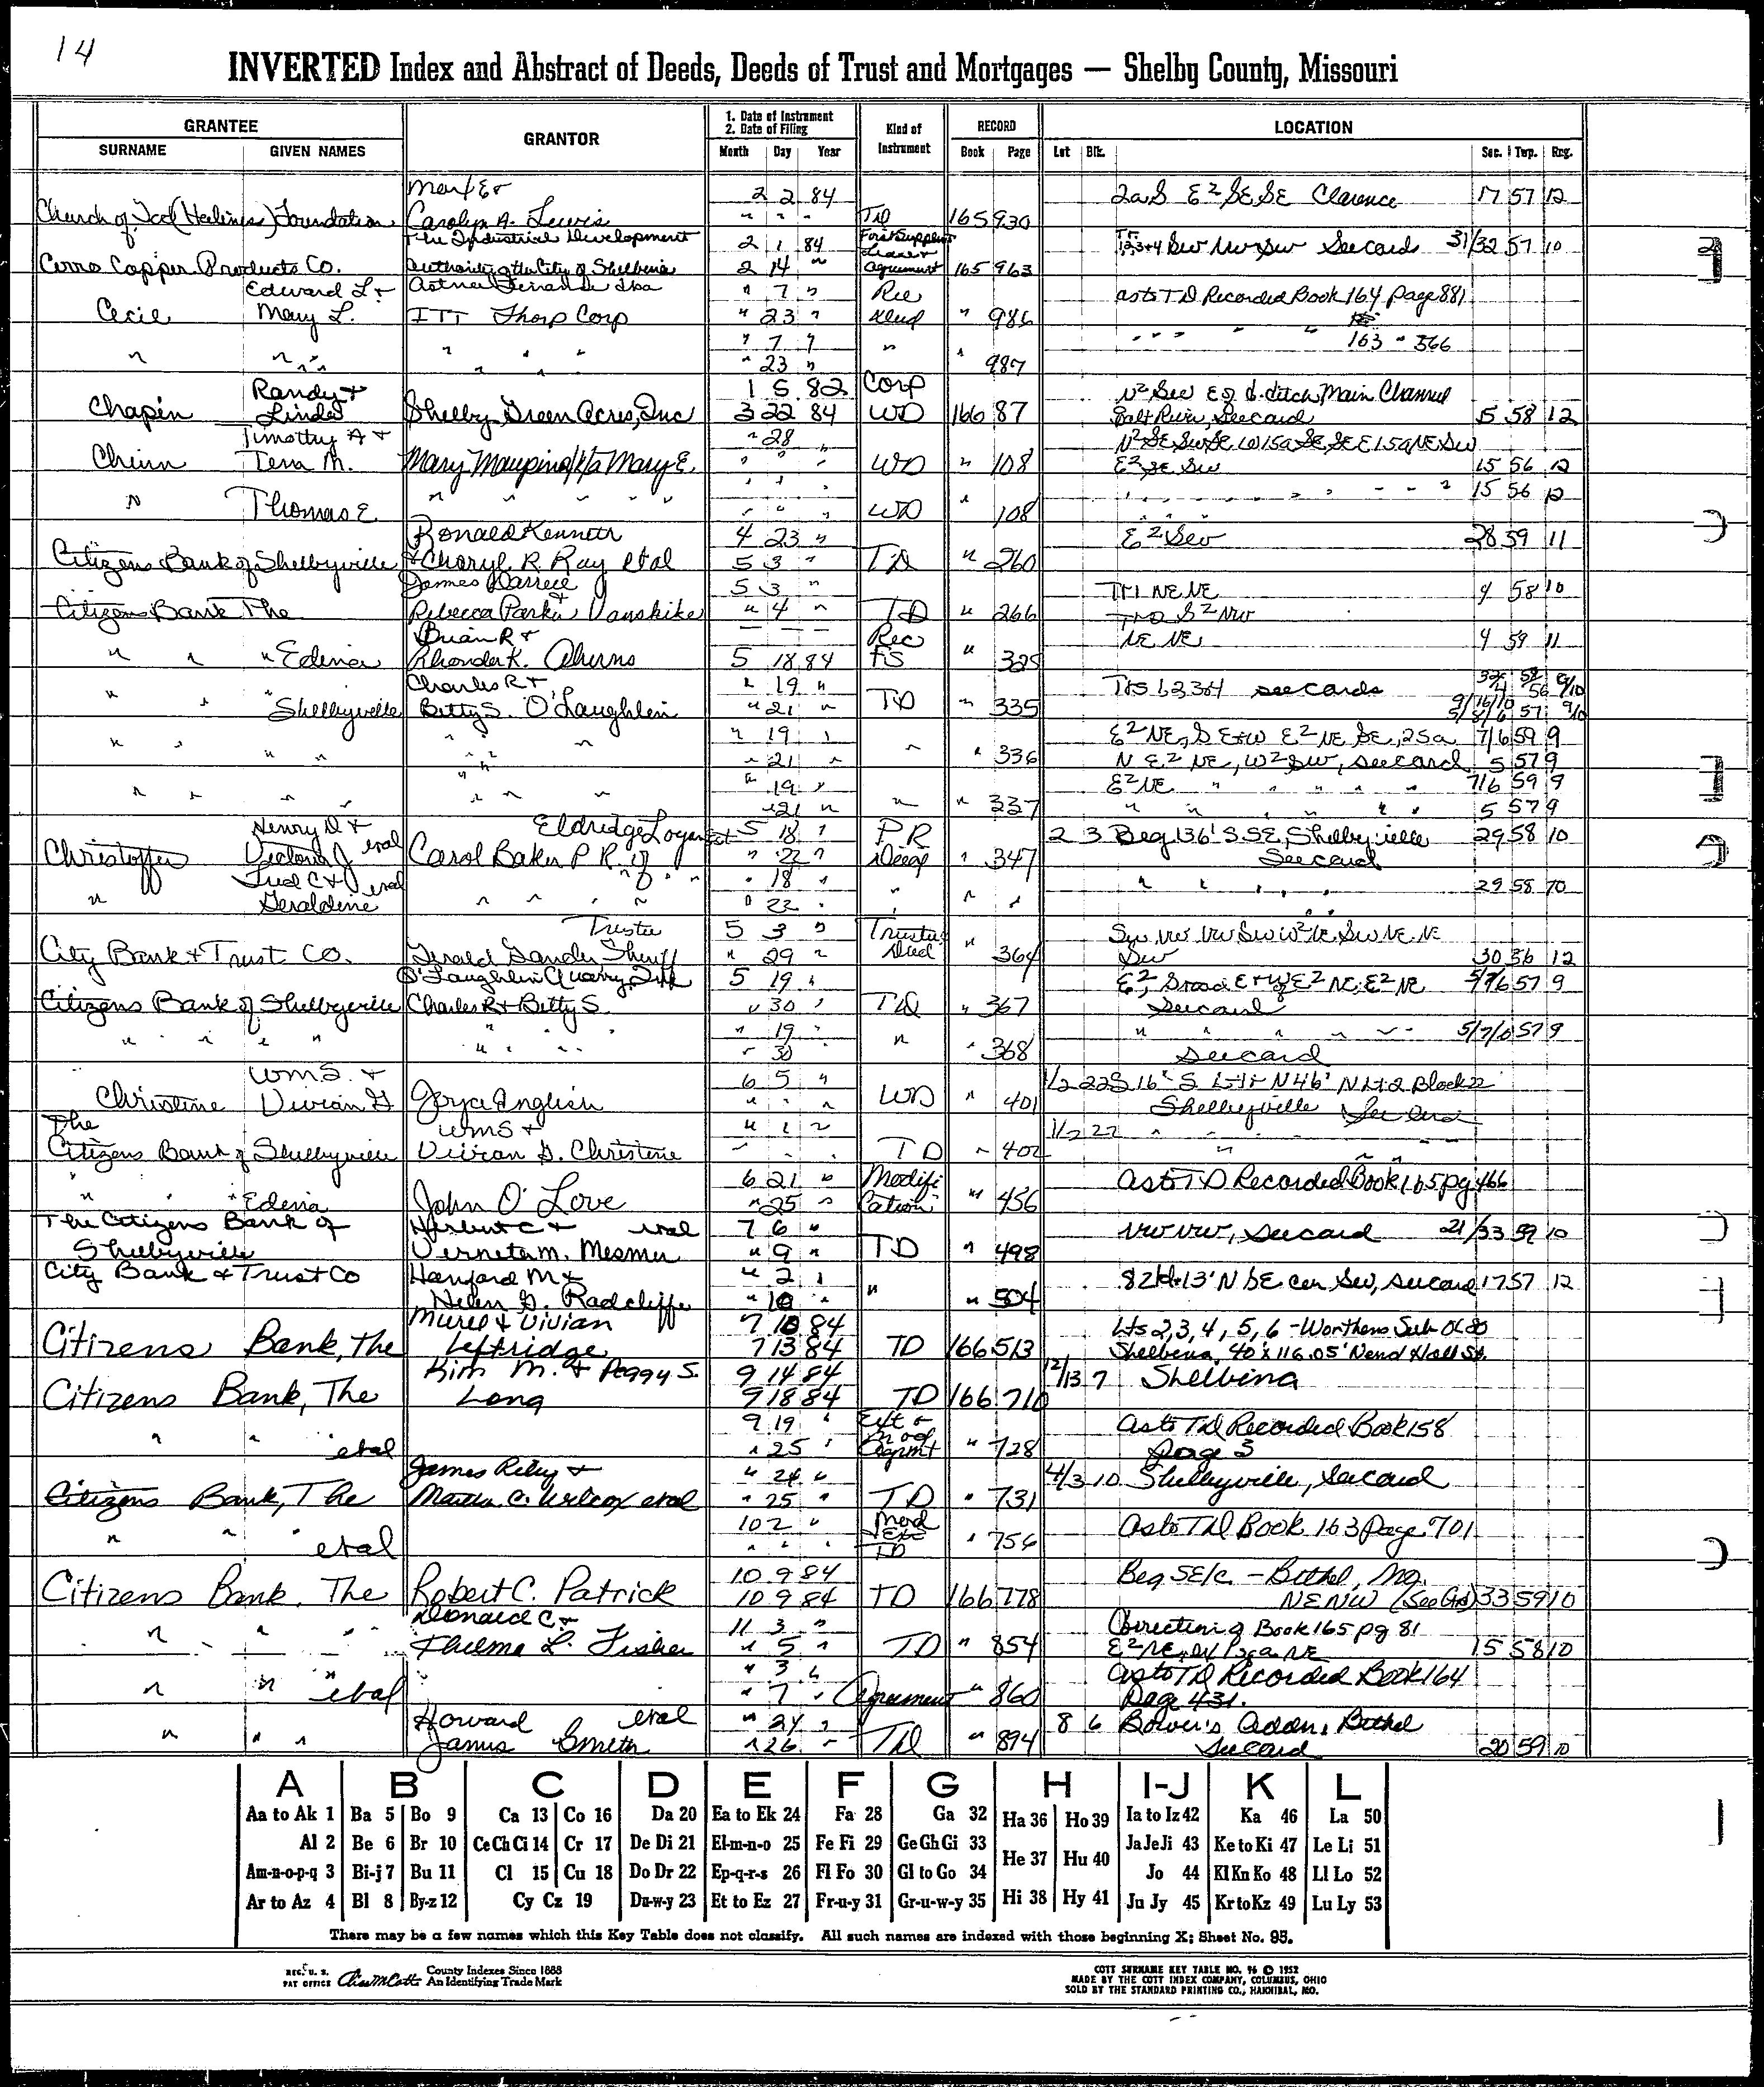 14
INVERTED Index and Abstract of Deeds, Deeds of Trust and Mortgages — Shelby County, Missouri
GRANTEE GRANTOR 1. Date of Instrument 2. Date of Filing Kind of Instrument RECORD LOCATION
SURNAME GIVEN NAMES Month Day Year Book Page Lot Blk. Sec. Twp. Rrg.
2 2 84 2a S E² SE SE Clarence 17 57 12
Church of God (Holiness) Foundation Carolyn A. Lewis " " " TD 165 930
The Industrial Development 2 1 84 First Supplem 1,2,3+4 SW NW SW See card 31/32 57 10
Cerro Copper Products Co. Authority of the City of Shelbina 2 14 " Agreement 165 963
Edward L + " 7 " Rec as to TD Recorded Book 164 page 881
Cecil Mary L. ITT Thorp Corp " 23 " deed " 986
" 7 " " " " " 163 " 566
" " " " " " " 23 " " " 987
Randy + 1 5 82 Corp N² SW E of d. ditch Main Channel
Chapin Linda Shelby Green Acres, Inc 3 22 84 WD 166 87 Salt River, See card 5 58 12
Timothy A + " 28 " N² SE SW SE W 15a SE, SE E 15a NE SW
Chinn Tena M. Mary Maupin f/k/a Mary E. " " " WD " 108 E² SE SW 15 56 12
" " " " " 15 56 12
" Thomas E. " " " " " " WD " 108
Ronald Kenneth 4 23 " E² SW 28 59 11
Citizens Bank of Shelbyville + Cheryl R. Ray etal 5 3 " TD " 260
James Darrell + 5 3 " Tr 1 NE NE 4 58 10
Citizens Bank The Rebecca Parker Vanskike " 4 " TD " 266 Tr 2 S² NW
Brian R + — — — Rec NE NE 4 59 11
" " " Edina Rhonda K. Ahrens 5 18 84 FS " 325
Charles R + " 19 " Trs 1 2 3 + 4 see cards
" " " Shelbyville Betty S. O'Laughlin " 21 " TD " 335
" " " 19 " E² NE, S E+W E² NE SE, 25a 7/6 59 9
" " " " " 21 " " " 336 N E² NE, W² SW, see card 5 57 9
" 19 " E² NE " " " " 7/6 59 9
" " " " " " " " 21 " " " 337 " " " " " 5 57 9
Henry D + Eldridge Logan Est 5 18 " PR 2 3 Beg 136' S SE, Shelbyville 29 58 10
Christoffer Victoria J etal Carol Baker P R. of " 22 " Deed " 347 See card
Fred C + etal " 18 " " " " " " 29 58 10
" Geraldine " " " " " 22 " " " "
Trustee 5 3 " Trustee SW NW NW SW W² NE, SW NE NE
City Bank + Trust Co. Gerald Gander Sheriff " 29 " Deed " 364 SW 30 56 12
O'Laughlin Quarry, Inc 5 19 " E², S road E+W E² NE, E² NE 5/7/6 57 9
Citizens Bank of Shelbyville Charles R + Betty S. " 30 " TD " 367 See card
" 19 " " " " " " 5/7/6 57 9
" " " " " " " " " 30 " " " 368 See card
Wm S. + 6 5 " 1/2 22 S 16' S Lt 1+ N 46' N Lt 2 Block 22
Christine Vivian G Joyce English " " " WD " 401 Shelbyville See card
The Wm S + " 1 " 1/2 22 " " " "
Citizens Bank of Shelbyville Vivian G. Christine " " " TD " 402 " " "
6 21 " Modifi As to TD Recorded Book 165 pg 466
" " " Edina John O'Love " 25 " cation " 456
The Citizens Bank of Herbert C + etal 7 6 " NW NW, see card 21/33 59 10
Shelbyville Verneta M. Mesmer " 9 " TD " 498
City Bank + Trust Co Hanford M + " 2 " 82 rd+13' N SE cor SW, see card 17 57 12
Helen G. Radcliffe " 10 " " " 504
Muriel + Vivian 7 10 84 Lts 2, 3, 4, 5, 6 - Worthens Sub Ol 80
Citizens Bank, The Leftridge 7 13 84 TD 166 513 Shelbina, 40' x 116.05' N end Hall St.
Kim M. + Peggy S. 9 14 84 12/13 7 Shelbina
Citizens Bank, The Long 9 18 84 TD 166 710
9 19 " Ext + As to TD Recorded Book 158
" " etal " 25 " Mod Agrmt " 728 page 3
James Riley + " 24 " 4/3 10 Shelbyville, See card
Citizens Bank, The Martha C. Wilcox etal " 25 " TD " 731
10 2 " Mod As to TD Book 163 page 701
" " " etal " " " Ext TD " 756
10 9 84 Beg SE/c - Bethel, Mo.
Citizens Bank, The Robert C. Patrick 10 9 84 TD 166 778 NE NW (See Crd) 33 59 10
Donald C. + 11 3 " Correcting Book 165 pg 81
" " " Thelma L. Fisher " 5 " TD " 854 15 58 10
" 3 " As to TD Recorded Book 164
" " " etal " 7 " Agreement " 860 Page 431.
Howard etal " 24 " 8 6 Bower's Addn, Bethel
" " " Janis Smith " 26 " TD " 894 See card 20 59 10
A B C D E F G H I-J K L
Aa to Ak 1 Ba 5 Bo 9 Ca 13 Co 16 Da 20 Ea to Ek 24 Fa 28 Ga 32 Ha 36 Ho 39 Ia to Iz 42 Ka 46 La 50
Al 2 Be 6 Br 10 Ce Ch Ci 14 Cr 17 De Di 21 El-m-n-o 25 Fe Fi 29 Ge Gh Gi 33 He 37 Hu 40 Ja Je Ji 43 Ke to Ki 47 Le Li 51
Am-n-o-p-q 3 Bi-j 7 Bu 11 Cl 15 Cu 18 Do Dr 22 Ep-q-r-s 26 Fl Fo 30 Gl to Go 34 Jo 44 Kl Kn Ko 48 Ll Lo 52
Ar to Az 4 Bl 8 By-z 12 Cy Cz 19 Du-w-y 23 Et to Ez 27 Fr-u-y 31 Gr-u-w-y 35 Hi 38 Hy 41 Ju Jy 45 Kr to Kz 49 Lu Ly 53
There may be a few names which this Key Table does not classify. All such names are indexed with those beginning X; Sheet No. 95.
REG. U. S. PAT OFFICE County Indexes Since 1888 An Identifying Trade Mark
COTT SURNAME KEY TABLE NO. 96 © 1952
MADE BY THE COTT INDEX COMPANY, COLUMBUS, OHIO
SOLD BY THE STANDARD PRINTING CO., HANNIBAL, MO.